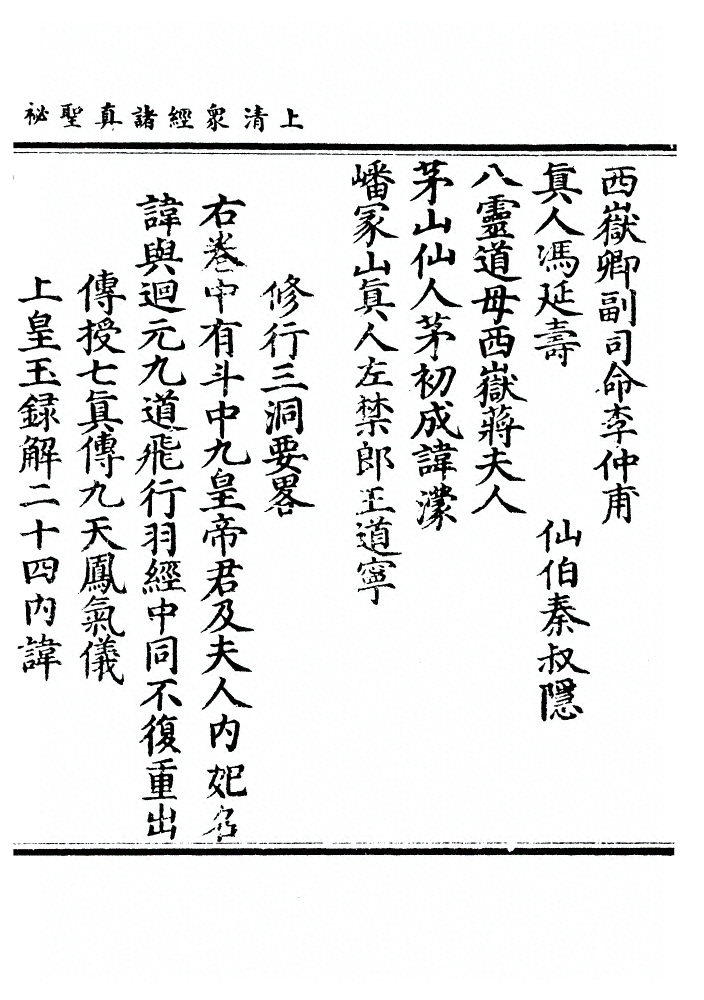 上清衆經諸真聖祕
西嶽卿副司命李仲甫
真人馮延壽　仙伯秦叔隱
八靈道母西嶽蔣夫人
茅山仙人茅初成諱濛
嶓冢山真人左禁郎王道寧
修行三洞要畧
右卷中有斗中九皇帝君及夫人內妃名
諱與迴元九道飛行羽經中同不復重出
傳授七真傳九天鳳氣儀
上皇玉録解二十四內諱